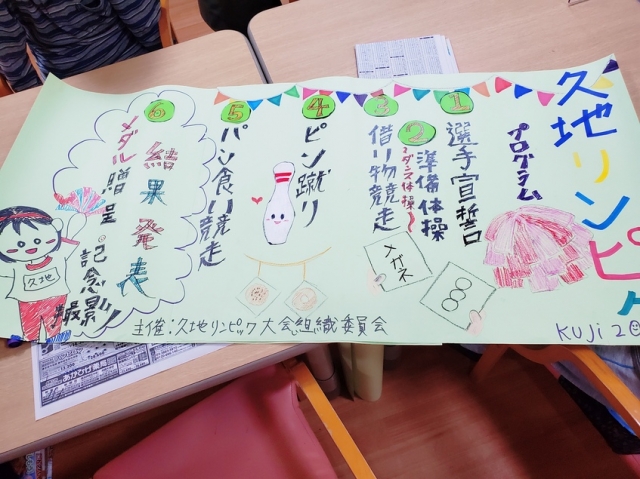 久地リンピック
プログラム
1 選手宣誓
2 準備体操
〜ダンス体操〜
3 借り物競走
4 ピン蹴り
5 パン食い競走
6 結果発表
メダル贈呈・記念撮影
メガネ
〇〇〇
久地
主催：久地リンピック大会組織委員会
KUJI 20